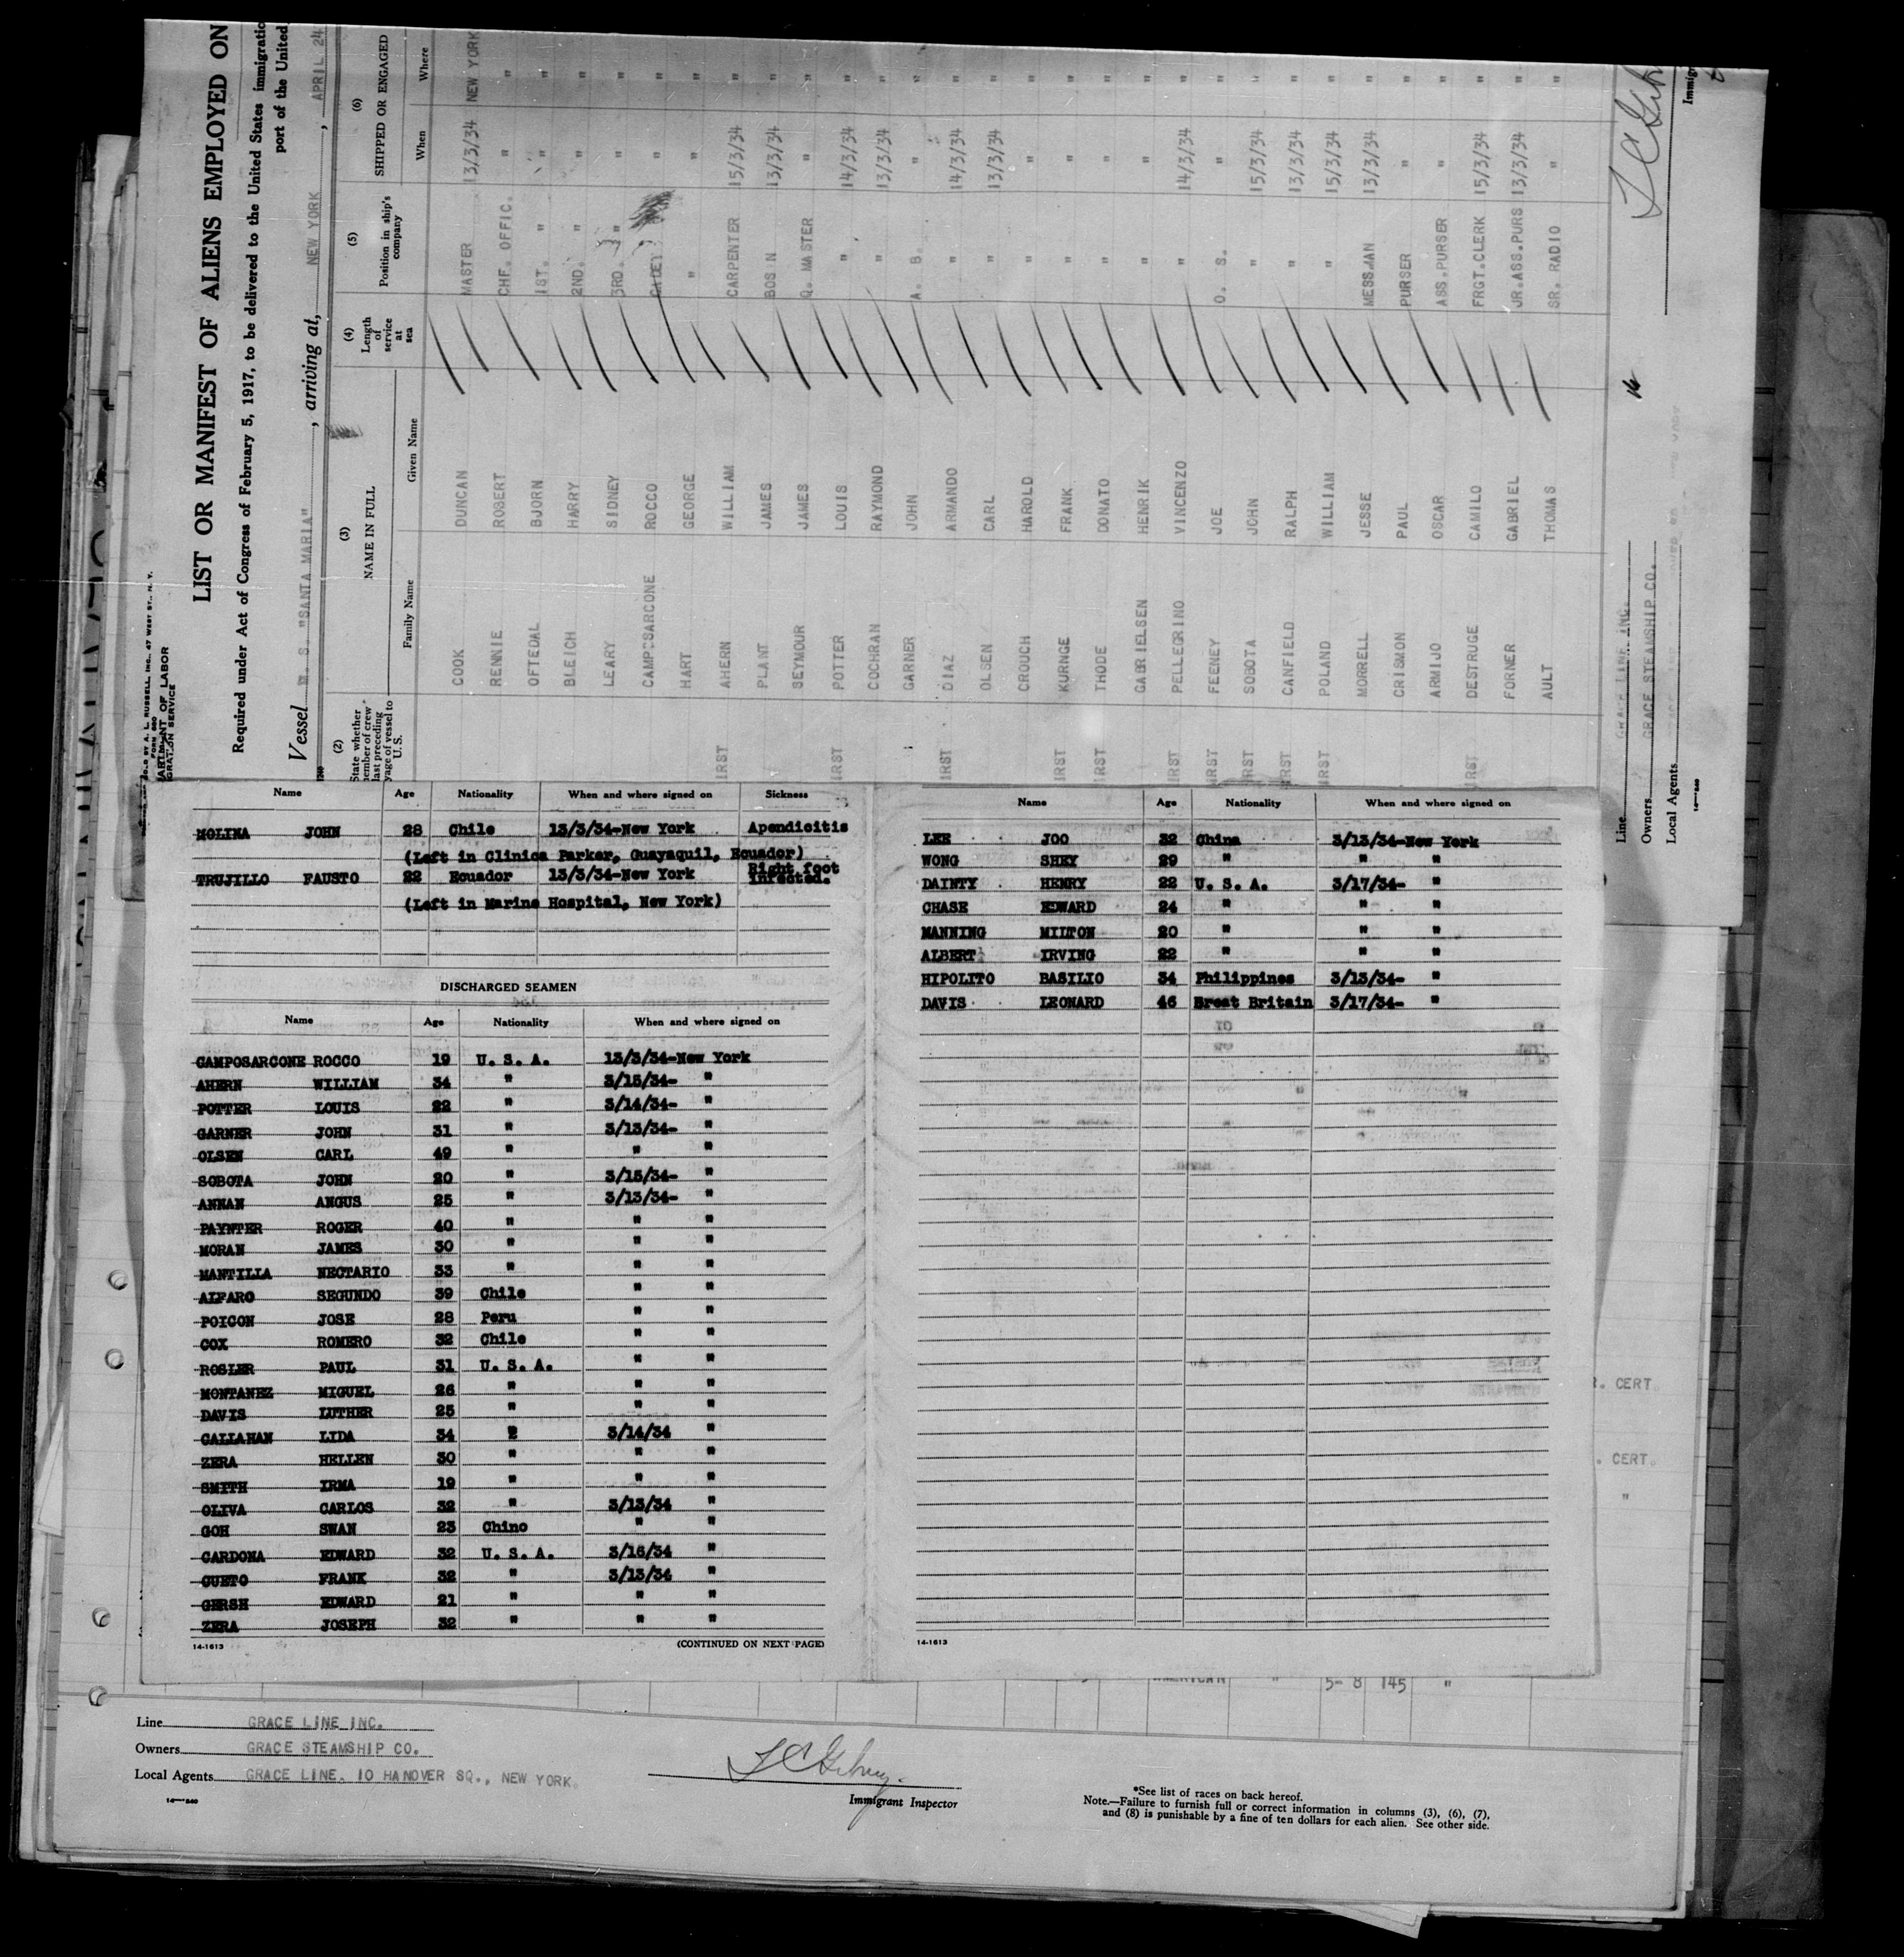 SOLD BY A. L. RUSSELL INC., 47 WEST ST., N. Y.
FORM 680
ARTMENT OF LABOR
GRATION SERVICE
LIST OR MANIFEST OF ALIENS EMPLOYED ON
Required under Act of Congress of February 5, 1917, to be delivered to the United States immigratic
port of the United
Vessel M. S. "SANTA MARIA", arriving at, NEW YORK, APRIL 24
(2) (3) (4) (5) (6)
State whether member of crew last preceding yage of vessel to U. S. NAME IN FULL Length of service at sea Position in ship's company SHIPPED OR ENGAGED
Family Name Given Name When Where
COOK DUNCAN MASTER 13/3/34 NEW YORK
RENNIE ROBERT CHF. OFFIC. " "
OFTEDAL BJORN 1ST. " " "
BLEICH HARRY 2ND. " " "
LEARY SIDNEY 3RD. " " "
CAMPOSARCONE ROCCO CADET " "
HART GEORGE " " "
IRST AHERN WILLIAM CARPENTER 15/3/34 "
PLANT JAMES BOS N 13/3/34 "
SEYMOUR JAMES Q. MASTER " "
IRST POTTER LOUIS " 14/3/34 "
COCHRAN RAYMOND " 13/3/34 "
GARNER JOHN A. B. " "
IRST DIAZ ARMANDO " 14/3/34 "
OLSEN CARL " 13/3/34 "
CROUCH HAROLD " " "
IRST KURNGE FRANK " " "
IRST THODE DONATO " " "
GABRIELSEN HENRIK " " "
IRST PELLEGRINO VINCENZO " 14/3/34 "
IRST FEENEY JOE O. S. " "
IRST SOBOTA JOHN " 15/3/34 "
IRST CANFIELD RALPH " 13/3/34 "
IRST POLAND WILLIAM " 15/3/34 "
MORRELL JESSE MESSMAN 13/3/34 "
CRISMON PAUL PURSER " "
ARMIJO OSCAR ASS.PURSER " "
IRST DESTRUGE CAMILO FRGT.CLERK 15/3/34 "
FORNER GABRIEL JR.ASS.PURS 13/3/34 "
AULT THOMAS SR. RADIO " "
Line GRACE LINE INC.
Owners GRACE STEAMSHIP CO.
Local Agents
14-840
16
Immigr
Name Age Nationality When and where signed on Sickness
MOLINA JOHN 28 Chile 13/3/34-New York Apendicitis
(Left in Clinica Parker, Guayaquil, Ecuador)
TRUJILLO FAUSTO 22 Ecuador 13/3/34-New York Right foot infected.
(Left in Marine Hospital, New York)
DISCHARGED SEAMEN
Name Age Nationality When and where signed on
CAMPOSARCONE ROCCO 19 U. S. A. 13/3/34-New York
AHERN WILLIAM 34 " 3/15/34- "
POTTER LOUIS 22 " 3/14/34- "
GARNER JOHN 31 " 3/13/34- "
OLSEN CARL 49 " " "
SOBOTA JOHN 20 " 3/15/34- "
ANNAN ANGUS 25 " 3/13/34- "
PAYNTER ROGER 40 " " "
MORAN JAMES 30 " " "
MANTILLA NECTARIO 33 " " "
ALFARO SEGUNDO 39 Chile " "
POICON JOSE 28 Peru " "
COX ROMERO 32 Chile " "
ROSLER PAUL 31 U. S. A. " "
MONTANEZ MIGUEL 26 " " "
DAVIS LUTHER 25 " " "
CALLAHAN LIDA 34 " 3/14/34 "
ZERA HELLEN 30 " " "
SMITH IRMA 19 " " "
OLIVA CARLOS 32 " 3/13/34 "
GOH SWAN 23 Chino " "
CARDONA EDWARD 32 U. S. A. 3/16/34 "
CUETO FRANK 32 " 3/13/34 "
GERSH EDWARD 21 " " "
ZERA JOSEPH 32 " " "
14-1613 (CONTINUED ON NEXT PAGE)
Name Age Nationality When and where signed on
LEE JOO 32 China 3/13/34-New York
WONG SHEY 29 " " "
DAINTY HENRY 22 U. S. A. 3/17/34- "
CHASE EDWARD 24 " " "
MANNING MILTON 20 " " "
ALBERT IRVING 22 " " "
HIPOLITO BASILIO 34 Philippines 3/13/34- "
DAVIS LEONARD 46 Breat Britain 3/17/34- "
14-1613
R. CERT.
. CERT.
"
AMERICAN " 5- 8 145 "
Line GRACE LINE INC.
Owners GRACE STEAMSHIP CO.
Local Agents GRACE LINE. 10 HANOVER SQ., NEW YORK.
14-840
Immigrant Inspector
*See list of races on back hereof.
Note.—Failure to furnish full or correct information in columns (3), (6), (7),
and (8) is punishable by a fine of ten dollars for each alien. See other side.